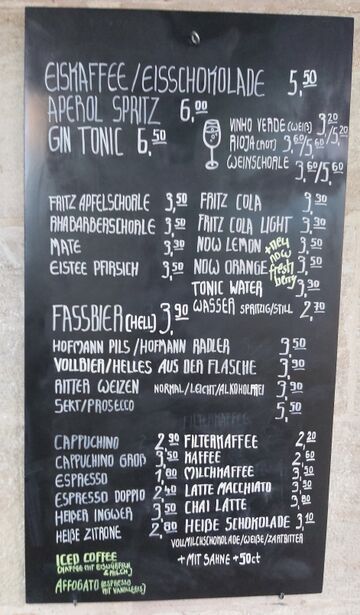 EISKAFFEE/EISSCHOKOLADE 5,50
APEROL SPRITZ 6,00
GIN TONIC 6,50
VINHO VERDE (WEIß) 3,20/5,20
RIOJA (ROT) 3,60/5,60
WEINSCHORLE 3,60/5,60
FRITZ APFELSCHORLE 3,50
RHABARBERSCHORLE 3,50
MATE 3,30
EISTEE PFIRSICH 3,50
FRITZ COLA 3,30
FRITZ COLA LIGHT 3,30
NOW LEMON 3,50
NOW ORANGE 3,50
+ neu now fresh berry
TONIC WATER 3,30
WASSER SPRITZIG/STILL 2,70
FASSBIER (HELL) 3,90
HOFMANN PILS / HOFMANN RADLER 3,50
VOLLBIER/HELLES AUS DER FLASCHE 3,90
RITTER WEIZEN NORMAL/LEICHT/ALKOHOLFREI 3,90
SEKT/PROSECCO 5,50
CAPPUCHINO 2,90
CAPPUCHINO GROß 3,50
ESPRESSO 1,80
ESPRESSO DOPPIO 2,40
HEIßER INGWER 3,50
HEIßE ZITRONE 2,80
FILTERKAFFEE 2,20
KAFFEE 2,60
MILCHKAFFEE 3,50
LATTE MACCHIATO 3,50
CHAI LATTE 3,80
HEIßE SCHOKOLADE 3,10
VOLLMILCHSCHOKOLADE/WEIßE/ZARTBITTER
+ MIT SAHNE +50ct
ICED COFFEE
(KAFFEE MIT EISWÜRFELN
& MILCH)
AFFOGATO (ESPRESSO
MIT VANILLEEIS)